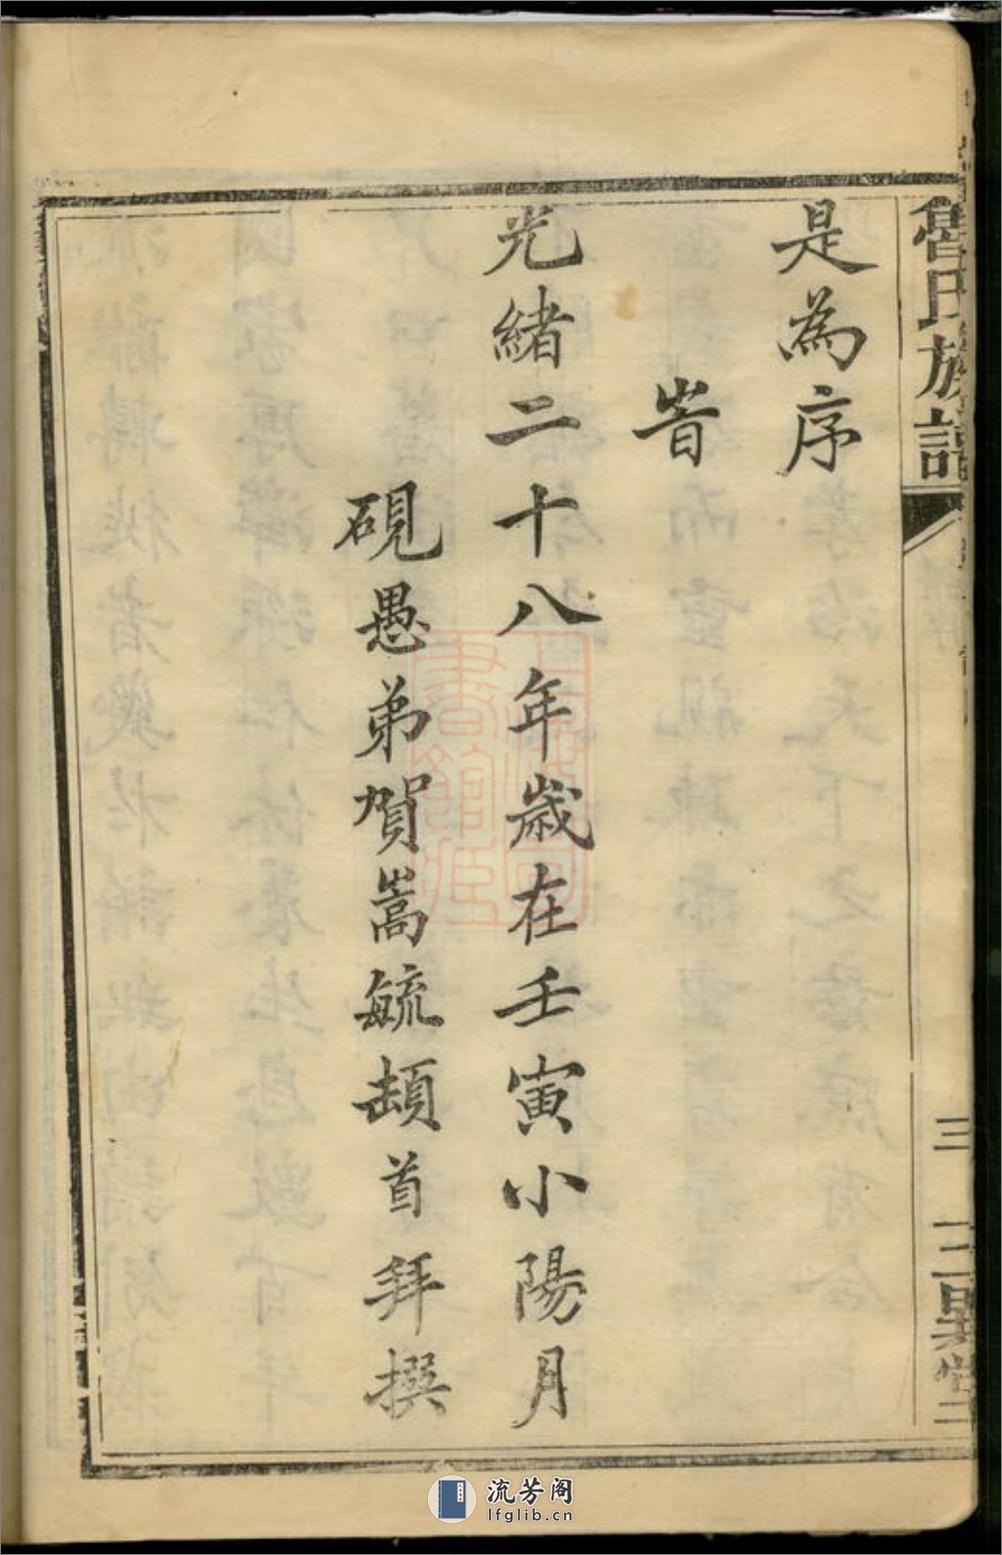 魯氏族譜
三
是為序
旹
光緒二十八年歲在壬寅小陽月
硯愚弟賀嵩毓頡首拜撰
流芳阁
lfglib.cn